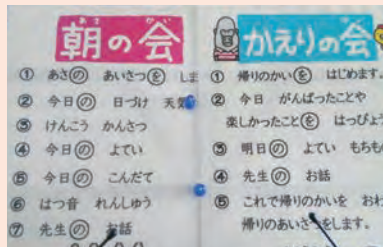 朝の会
① あさの あいさつを しま
② 今日の 日づけ 天気
③ けんこう かんさつ
④ 今日の よてい
⑤ 今日の こんだて
⑥ はつ音 れんしゅう
⑦ 先生の お話
かえりの会
① 帰りのかいを はじめます。
② 今日 がんばったことや
楽しかったことを はっぴょう
③ 明日の よてい もちも
④ 先生の お話
⑤ これで帰りのかいを おわ
帰りのあいさつをします。